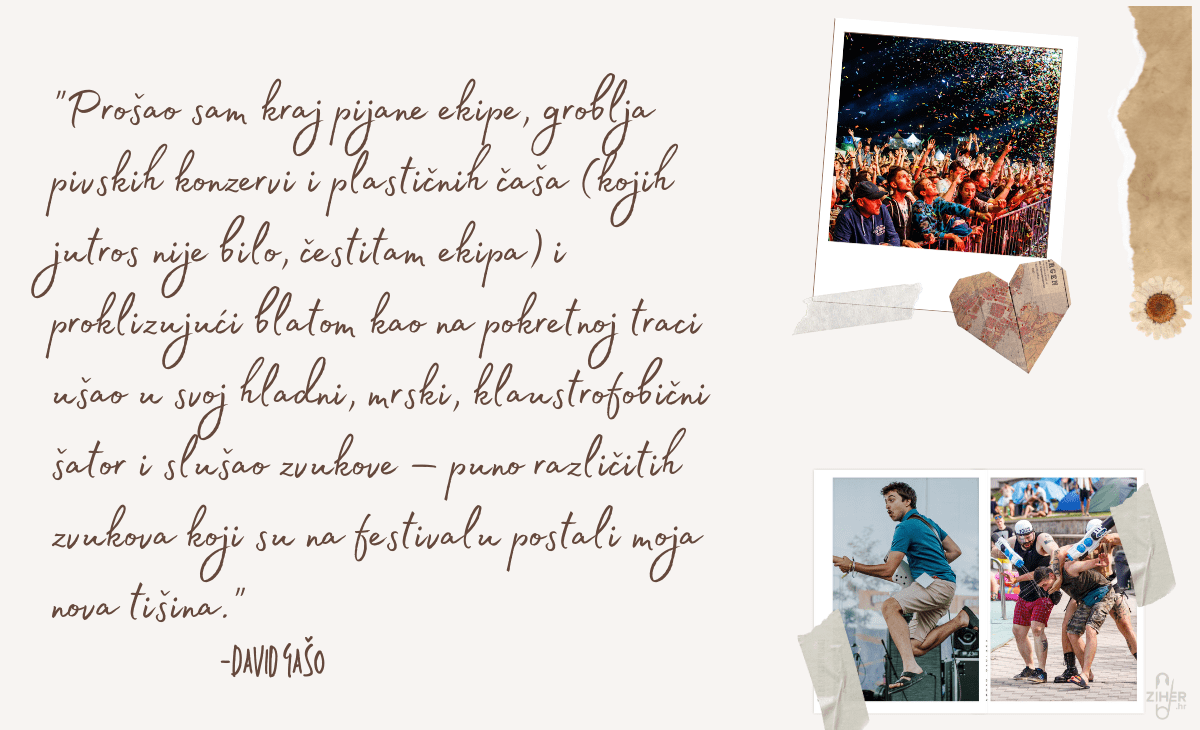 "Prošao sam kraj pijane ekipe, groblja
pivskih konzervi i plastičnih čaša (kojih
jutros nije bilo, čestitam ekipa) i
proklizujući blatom kao na pokretnoj traci
ušao u svoj hladni, mrski, klaustrofobični
šator i slušao zvukove – puno različitih
zvukova koji su na festivalu postali moja
nova tišina."
-DAVID GAŠO
ZIHER
.hr